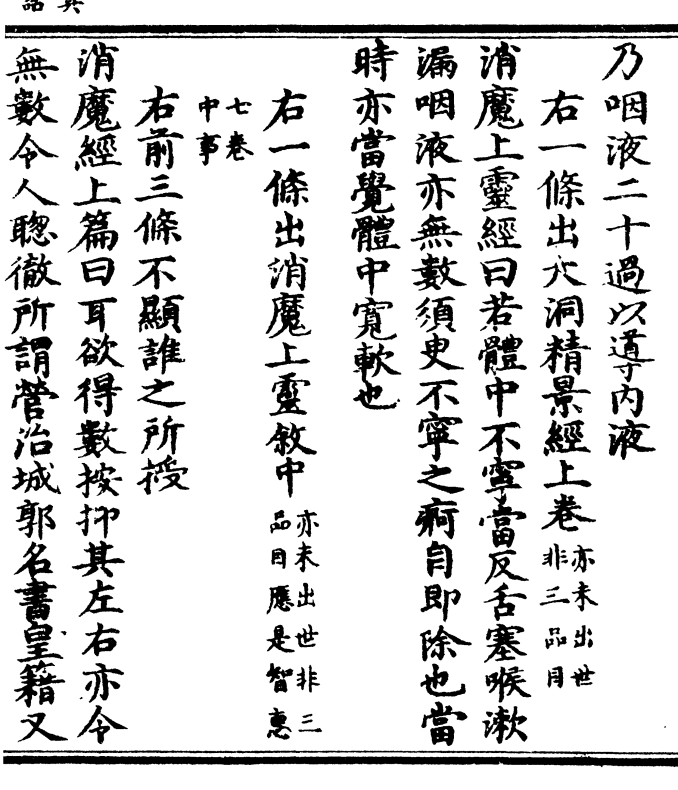 乃咽液二十過以導内液
右一條出大洞精景經上卷亦未出世非三品目
消魔上靈經曰若體中不寧當反舌塞喉漱
漏咽液亦無數須臾不寧之痾自即除也當
時亦當覺體中寬軟也
右一條出消魔上靈敘中亦未出世非三品目應是智惠
七卷中事
右前三條不顯誰之所授
消魔經上篇曰耳欲得數按抑其左右亦令
無數令人聰徹所謂營治城郭名書皇籍又